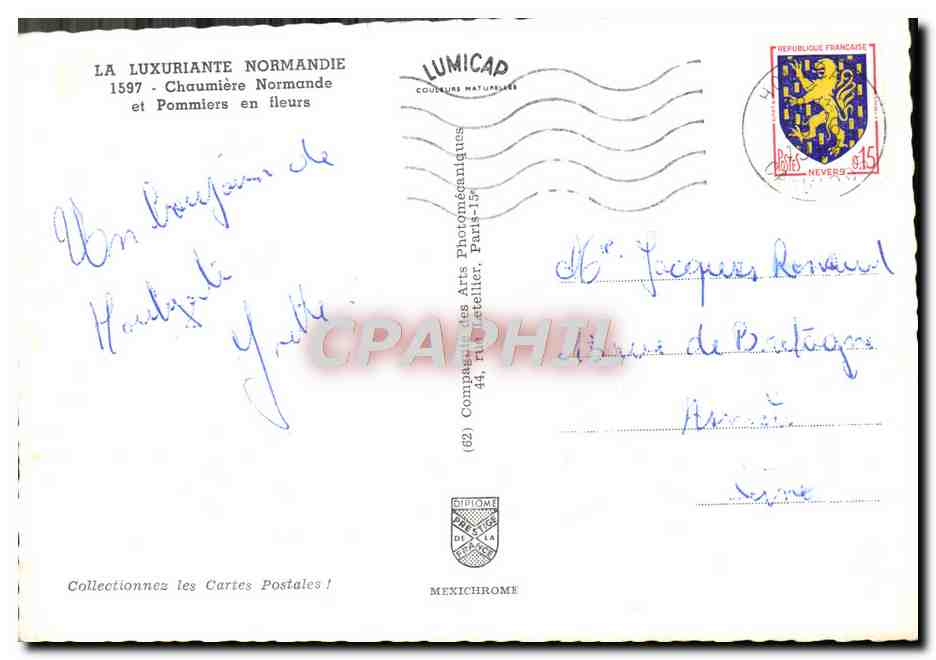 LA LUXURIANTE NORMANDIE
1597 - Chaumière Normande
et Pommiers en fleurs
LUMICAP
COULEURS NATURELLES
REPUBLIQUE FRANÇAISE
POSTES
0.15
NEVERS
Un bonjour de
Houlgate
Yvette
(62) Compagnie des Arts Photomécaniques
44, rue Letellier, Paris-15e
Mr. Jacques Renaud
rue de Bretagne
CPAPHIL
DIPLOME
PRESTIGE
DE LA
FRANCE
Collectionnez les Cartes Postales !
MEXICHROME